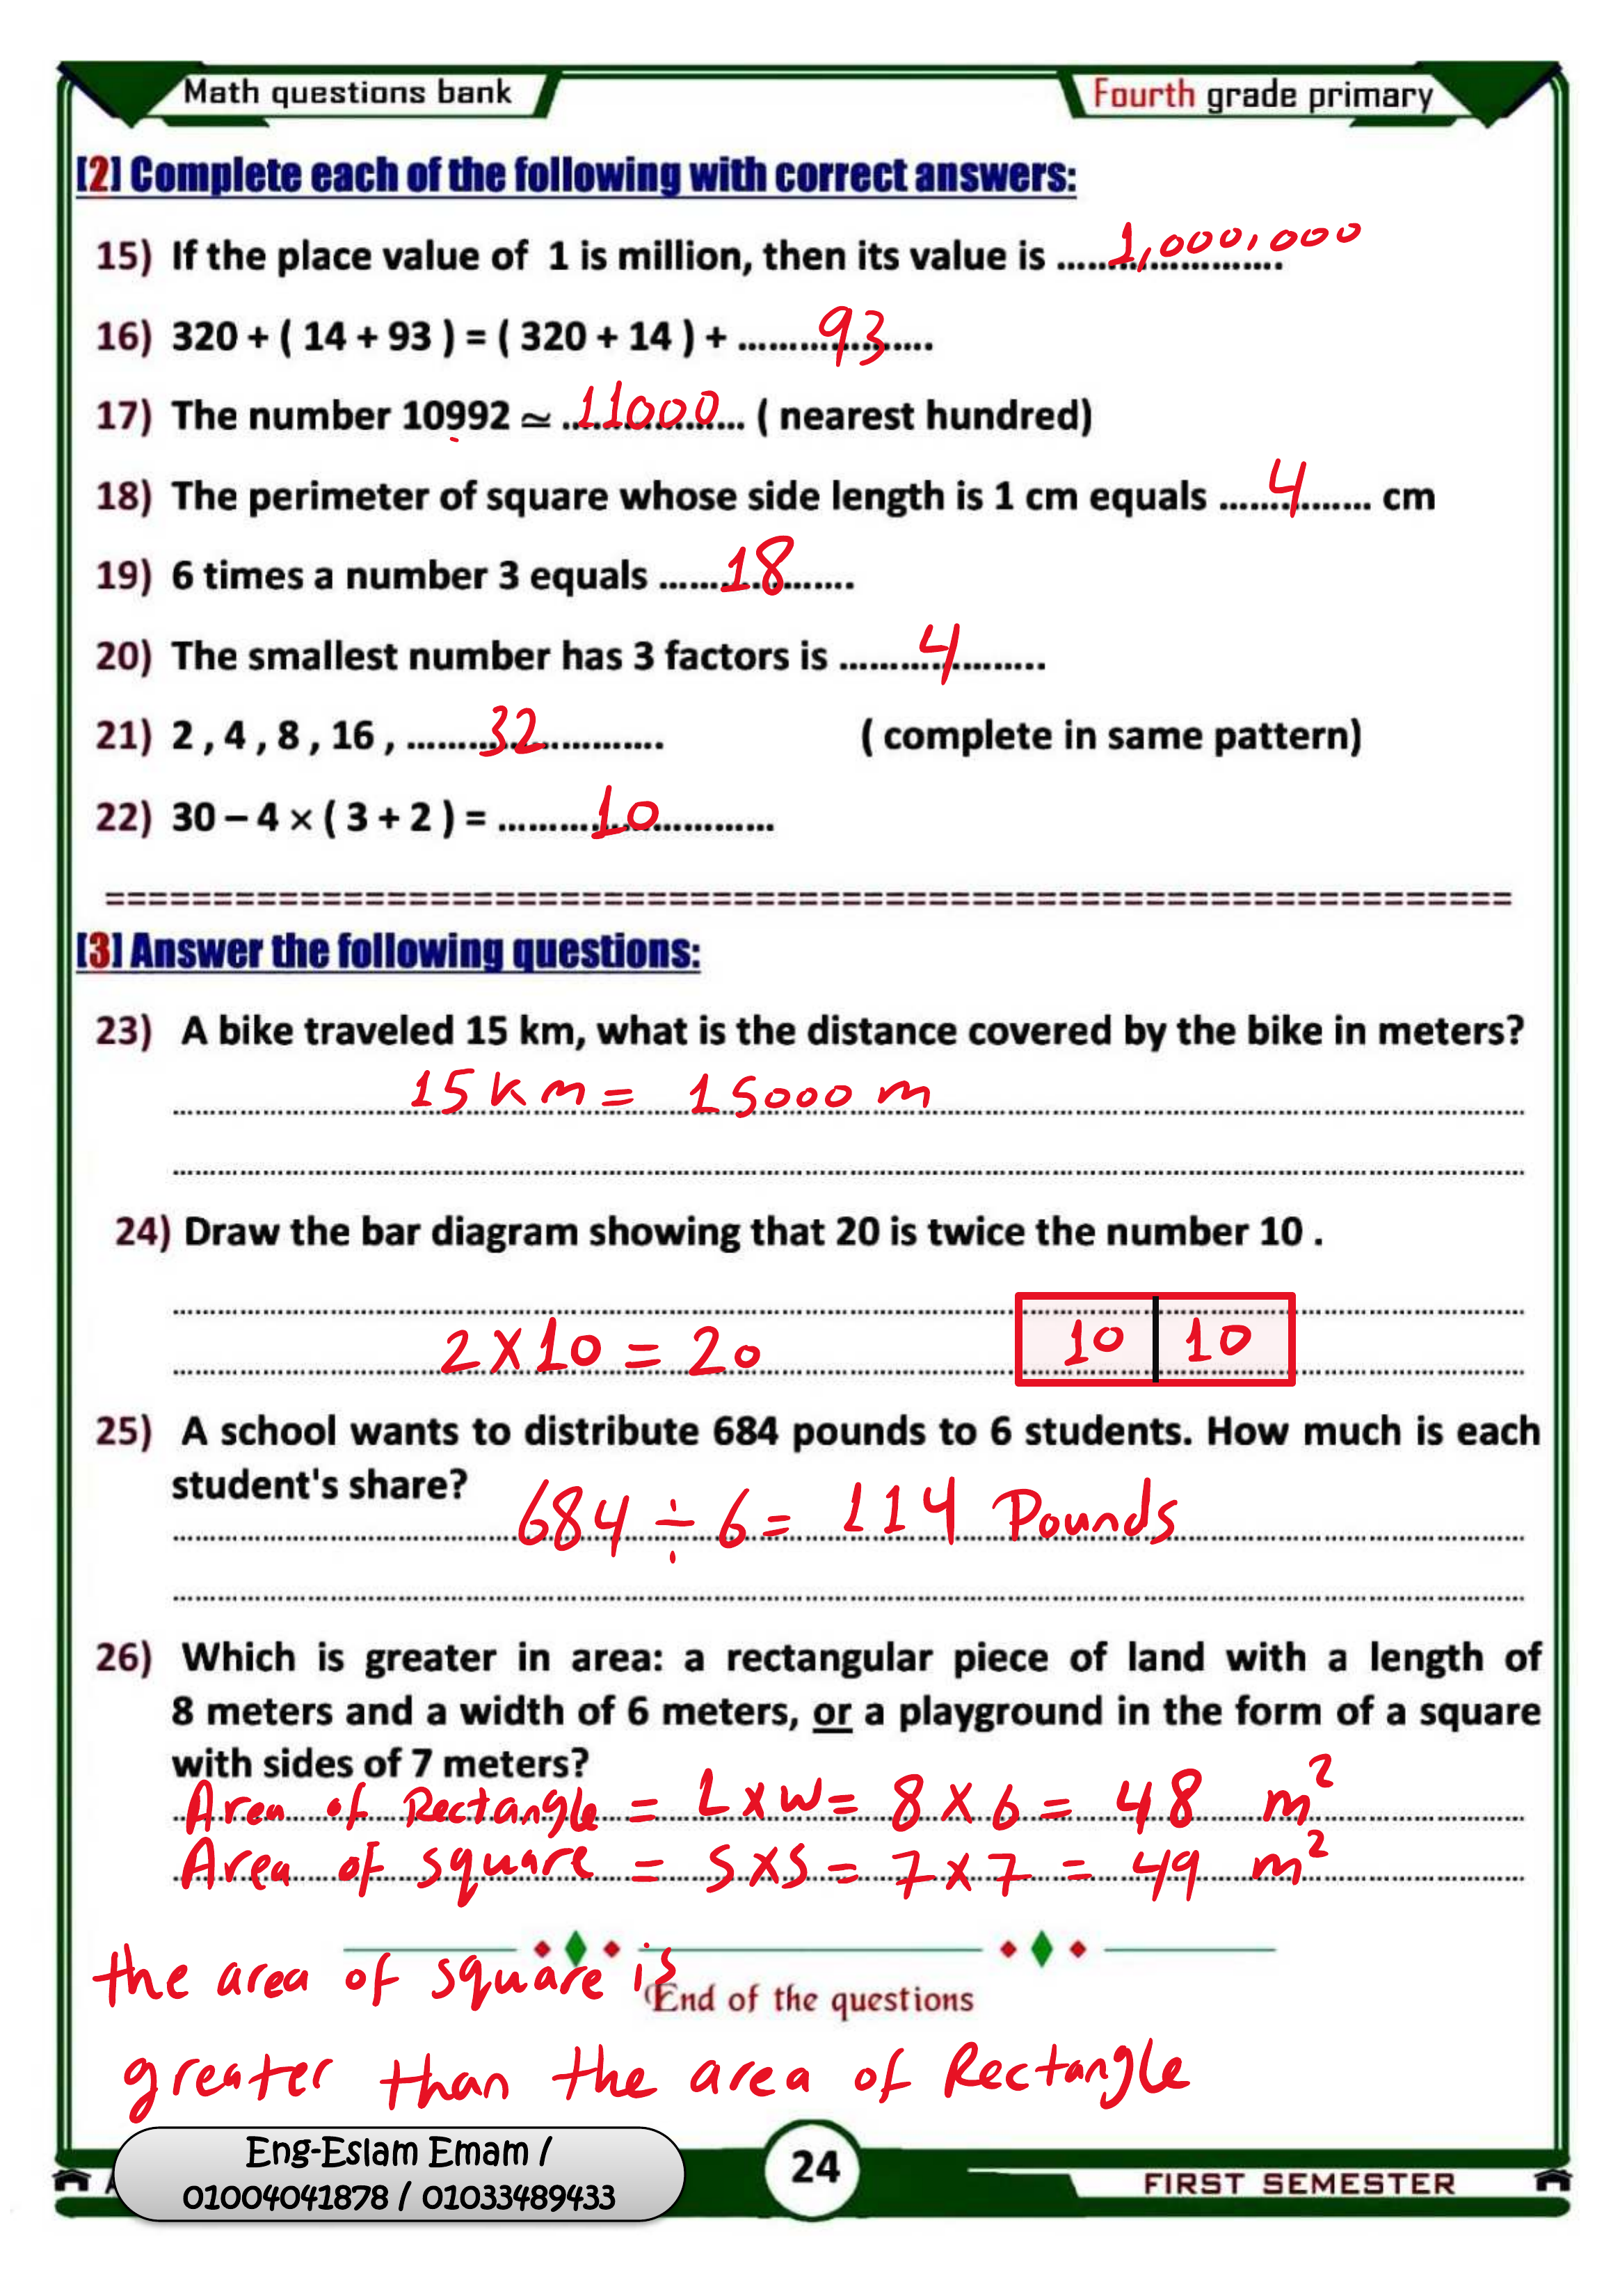 Math questions bank
Fourth grade primary
[2] Complete each of the following with correct answers:
15) If the place value of 1 is million, then its value is ........................ 1,000,000
16) 320 + ( 14 + 93 ) = ( 320 + 14 ) + ........................ 93
17) The number 10992 ≃ ........................ 11000 ( nearest hundred)
18) The perimeter of square whose side length is 1 cm equals .................. 4 cm
19) 6 times a number 3 equals ........................ 18
20) The smallest number has 3 factors is ........................ 4
21) 2 , 4 , 8 , 16 , ........................ 32 ( complete in same pattern)
22) 30 – 4 × ( 3 + 2 ) = ........................ 10
[3] Answer the following questions:
23) A bike traveled 15 km, what is the distance covered by the bike in meters?
15 km = 15000 m
24) Draw the bar diagram showing that 20 is twice the number 10 .
2 × 10 = 20 10 10
25) A school wants to distribute 684 pounds to 6 students. How much is each
student's share?
684 ÷ 6 = 114 Pounds
26) Which is greater in area: a rectangular piece of land with a length of
8 meters and a width of 6 meters, or a playground in the form of a square
with sides of 7 meters?
Area of Rectangle = L × W = 8 × 6 = 48 m²
Area of square = S × S = 7 × 7 = 49 m²
the area of square is
End of the questions
greater than the area of Rectangle
Eng-Eslam Emam /
01004041878 / 01033489433
24
FIRST SEMESTER